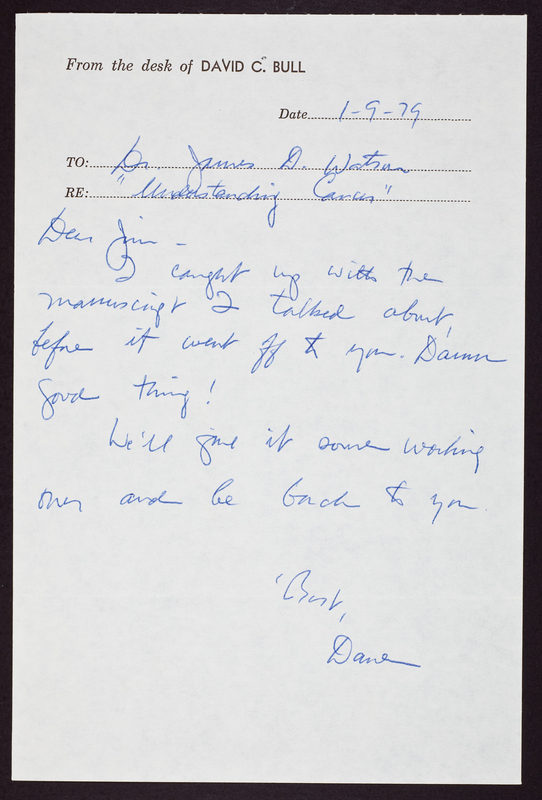 From the desk of DAVID C. BULL
Date 1-9-79
TO: Dr. James D. Watson
RE: "Understanding Cancer"
Dear Jim -
I caught up with the
manuscript I talked about,
before it went off to you. Damn
good thing!
We'll give it some working
over and be back to you.
'Best,
Dave